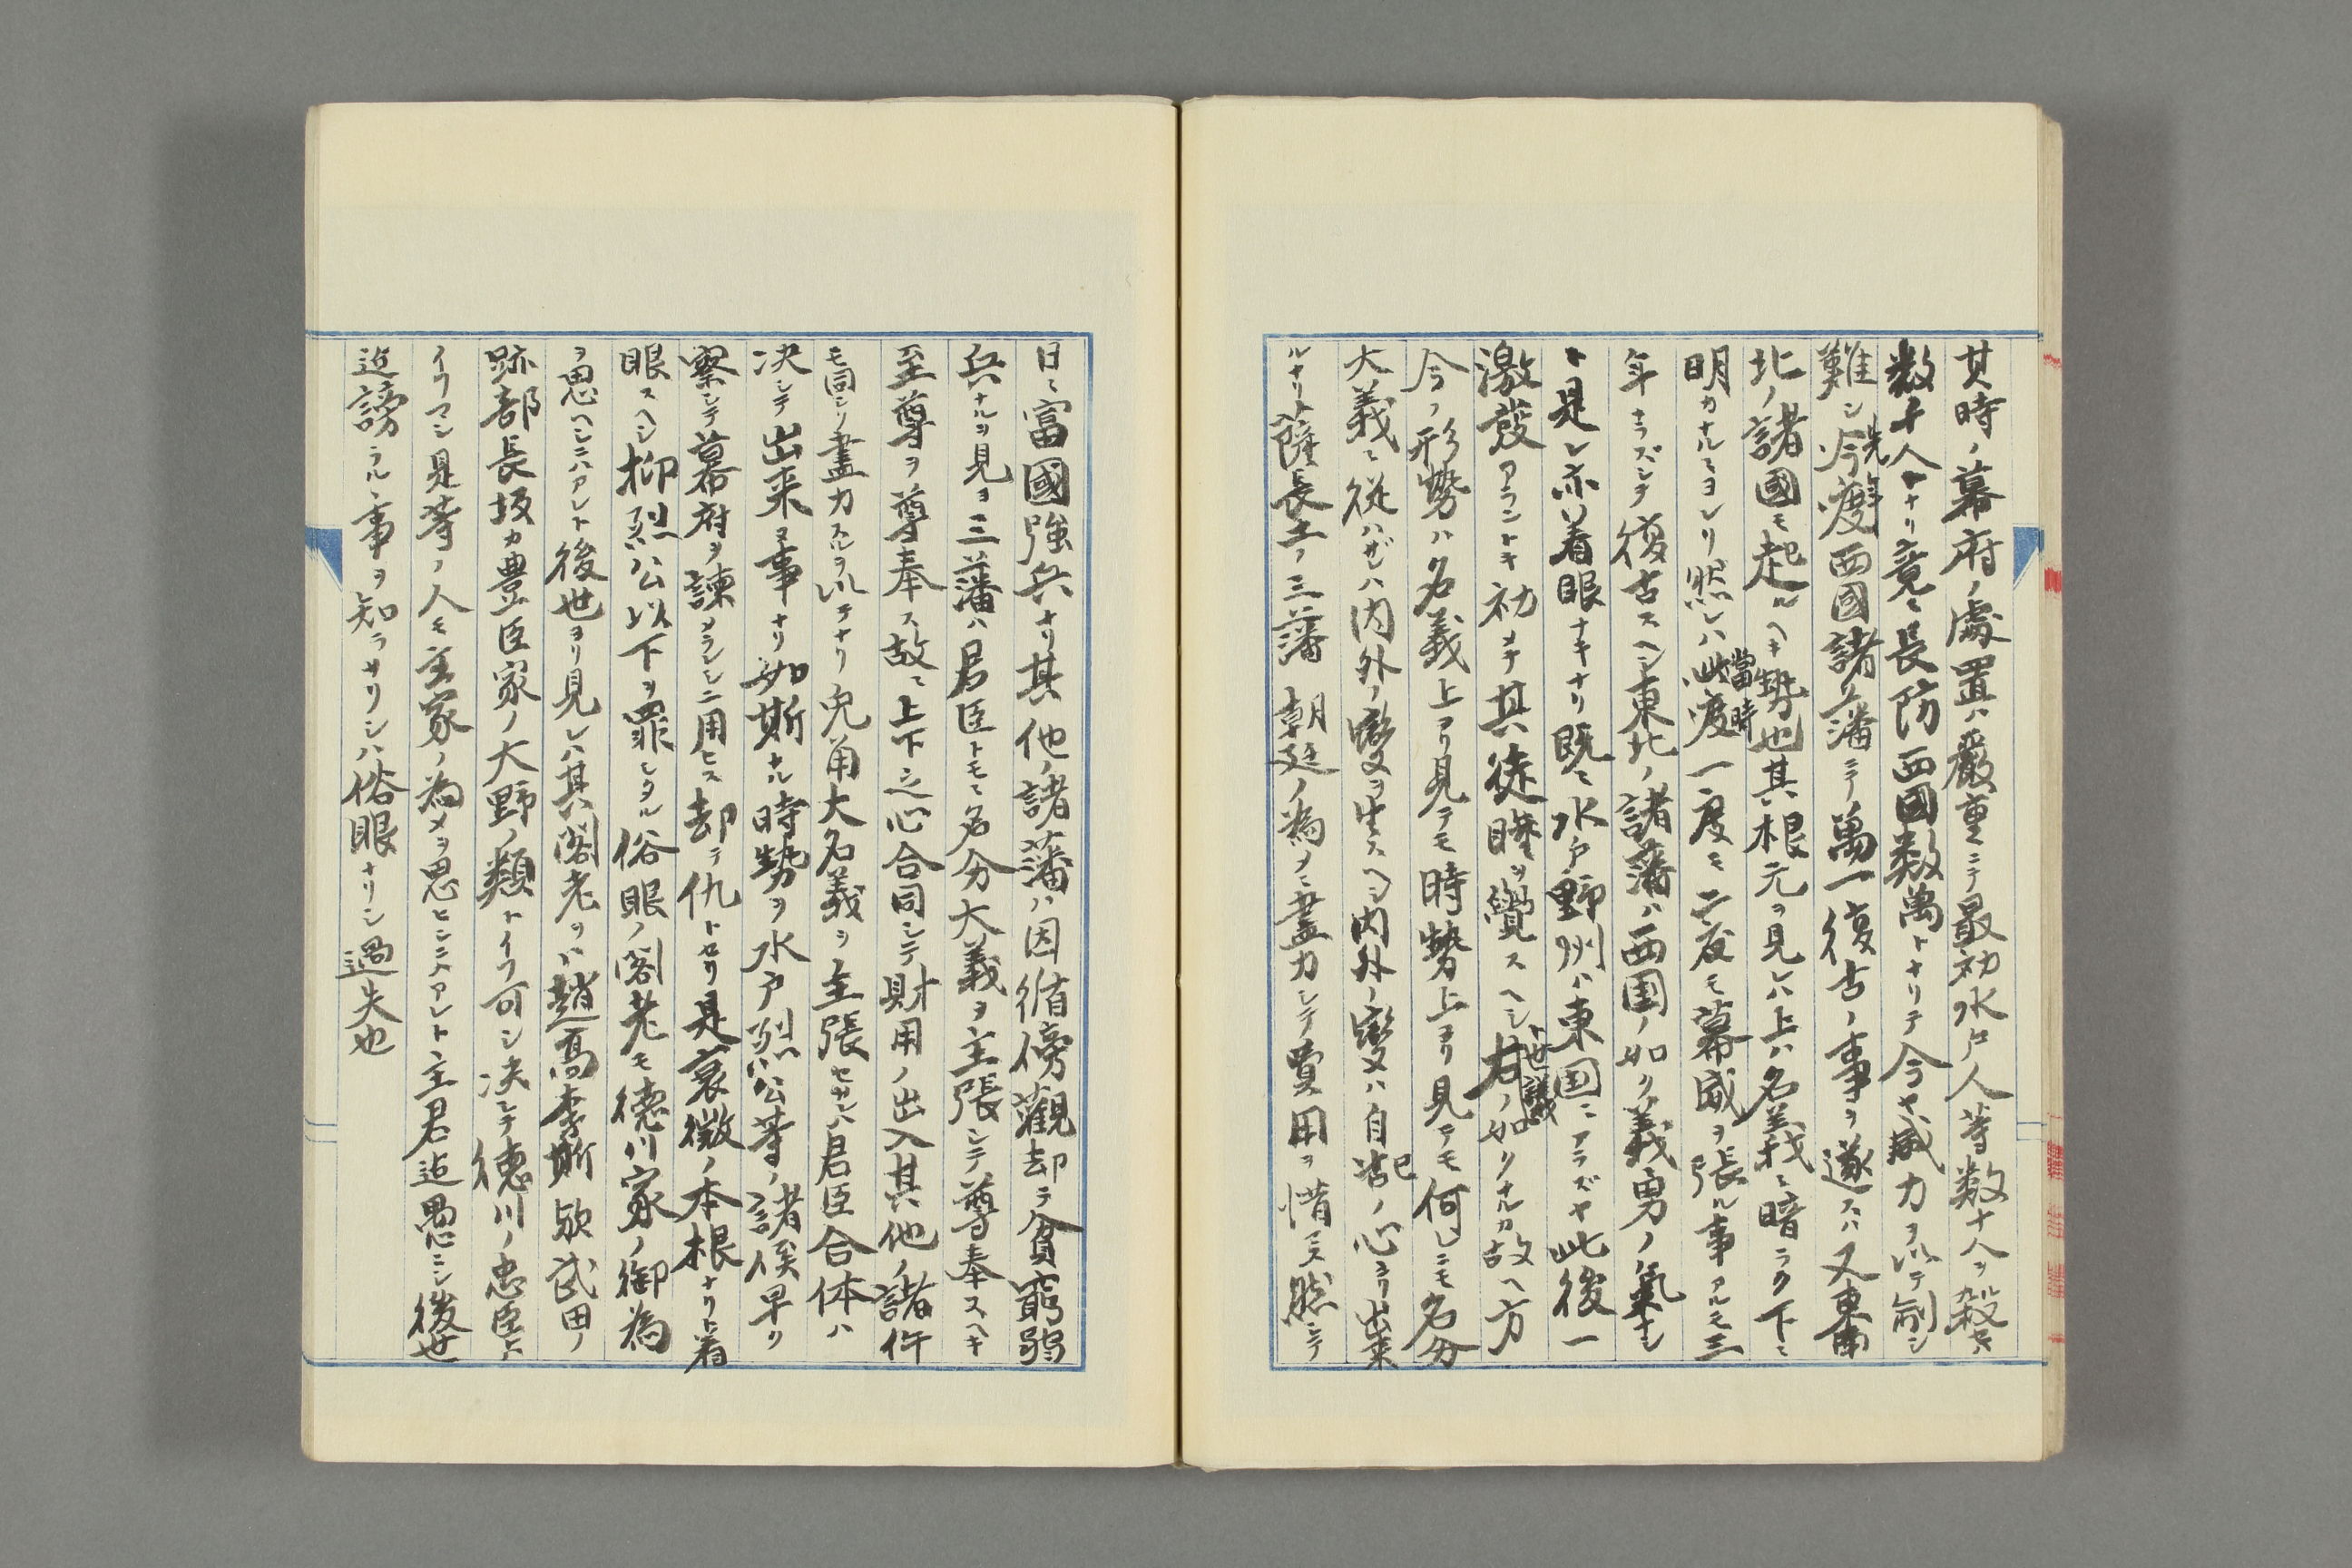 其時ノ幕府ノ處置ハ嚴重ニテ最初水戸人等数十人ヲ殺セハ
数千人トナリ竟ニ長防西国数萬トナリテ今ヤ威力ヲ以テ制シ
難シ先年今度西國諸藩ニテ萬一復古ノ事ヲ遂スハ又東南
北ノ諸國モ起ルヘキ勢也其根元ヲ見レハ上ハ名義ニ暗ラク下ニ
明カナルニヨレリ然レハ當時此度一度モ二度モ幕威ヲ張ル事アルモ三
年ナラズシテ復古スヘシ東北ノ諸藩ハ西国ノ如ク義勇ノ氣ナシ
ト是レ亦着眼ナキナリ既ニ水戸野州ハ東国ニアラズヤ此後一
激發アラントキ初メテ其徒睡ヲ覺スヘシ世議右ノ如クナルカ故ヘ方
今ノ形勢ハ名義上ヨリ見テモ時勢上ヨリ見テモ何レニモ名分
大義ニ從ハザレハ内外ノ變ヲ生スヘシ内外ノ變ハ自己ノ心ヨリ出来
ルナリ薩長土ノ三藩 朝廷ノ為メニ盡力シテ費用ヲ惜マス然シテ
日ニ富國強兵ナリ其他ノ諸藩ハ因循傍觀却テ貧窮弱
兵ナルヲ見ヨ三藩ハ君臣トモニ名分大義ヲ主張シテ尊奉スヘキ
至尊ヲ尊奉ス故ニ上下之心合同シテ財用ノ出入其他ノ諸件
モ同シク盡力スルヲ以テナリ兎角大名義ヲ主張セサレハ君臣合体ハ
决シテ出来ヌ事ナリ如斯ナル時勢ヲ水戸烈公等ノ諸侯早ク
察シテ幕府ヲ諫メラレシニ用ヒス却テ仇トセリ是衰微ノ本根ナリト着
眼スヘシ抑烈公以下ヲ罪シタル俗眼ノ閣老モ德川家ノ御為
ヲ思ヘシニハアレト後世ヨリ見レハ其閣老ヲハ趙高李斯欤武田ノ
跡部長坂カ豊臣家ノ大野ノ類トイフ可シ决シテ德川ノ忠臣トハ
イフマシ是等ノ人モ主家ノ為メヲ思ヒシニハアレト主君迄愚ニシ後世
迄謗ラル事ヲ知ラサリシハ俗眼ナリシ過失也